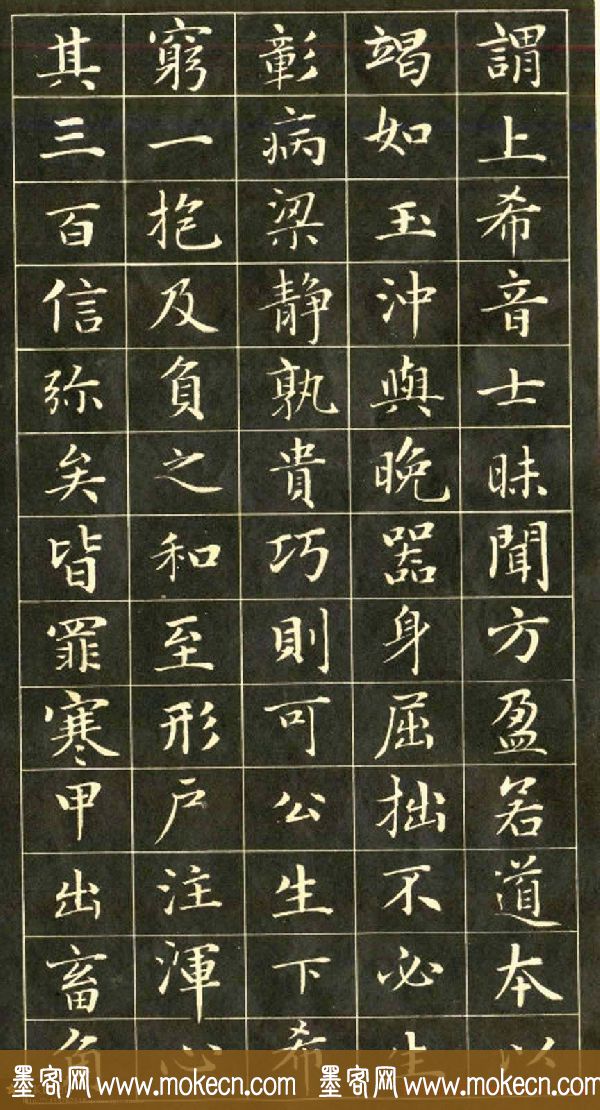 謂上希音士昧聞方盈若道本以
竭如玉沖與晚器身屈拙不必生
彰病梁静孰貴巧則可公生下希
窮一抱及負之和至形戶注渾心
其三百信弥矣皆罪寒甲出畜角
墨客网 www.mokecn.com 墨客网 www.mokecn.com